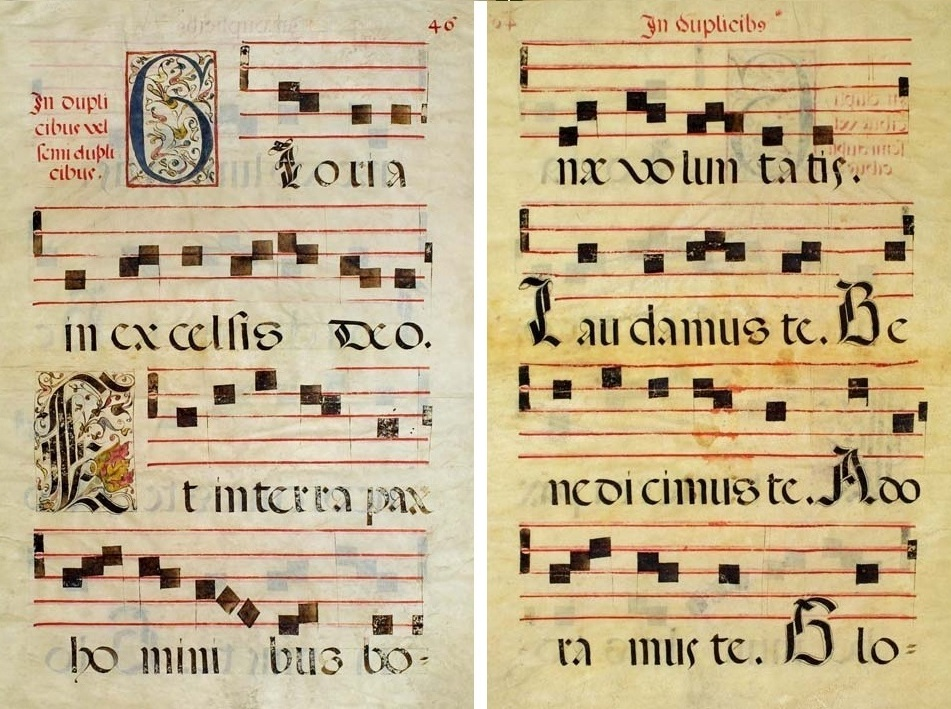 46
In dupli
cibus vel
semi dupli
cibus.
Gloria
in excelsis Deo.
Et in terra pax
ho mini bus bo-
In duplicibꝰ
næ volun tatis.
Lau damus te. Be
nedi cimus te. Ado
ra mus te. Glo=